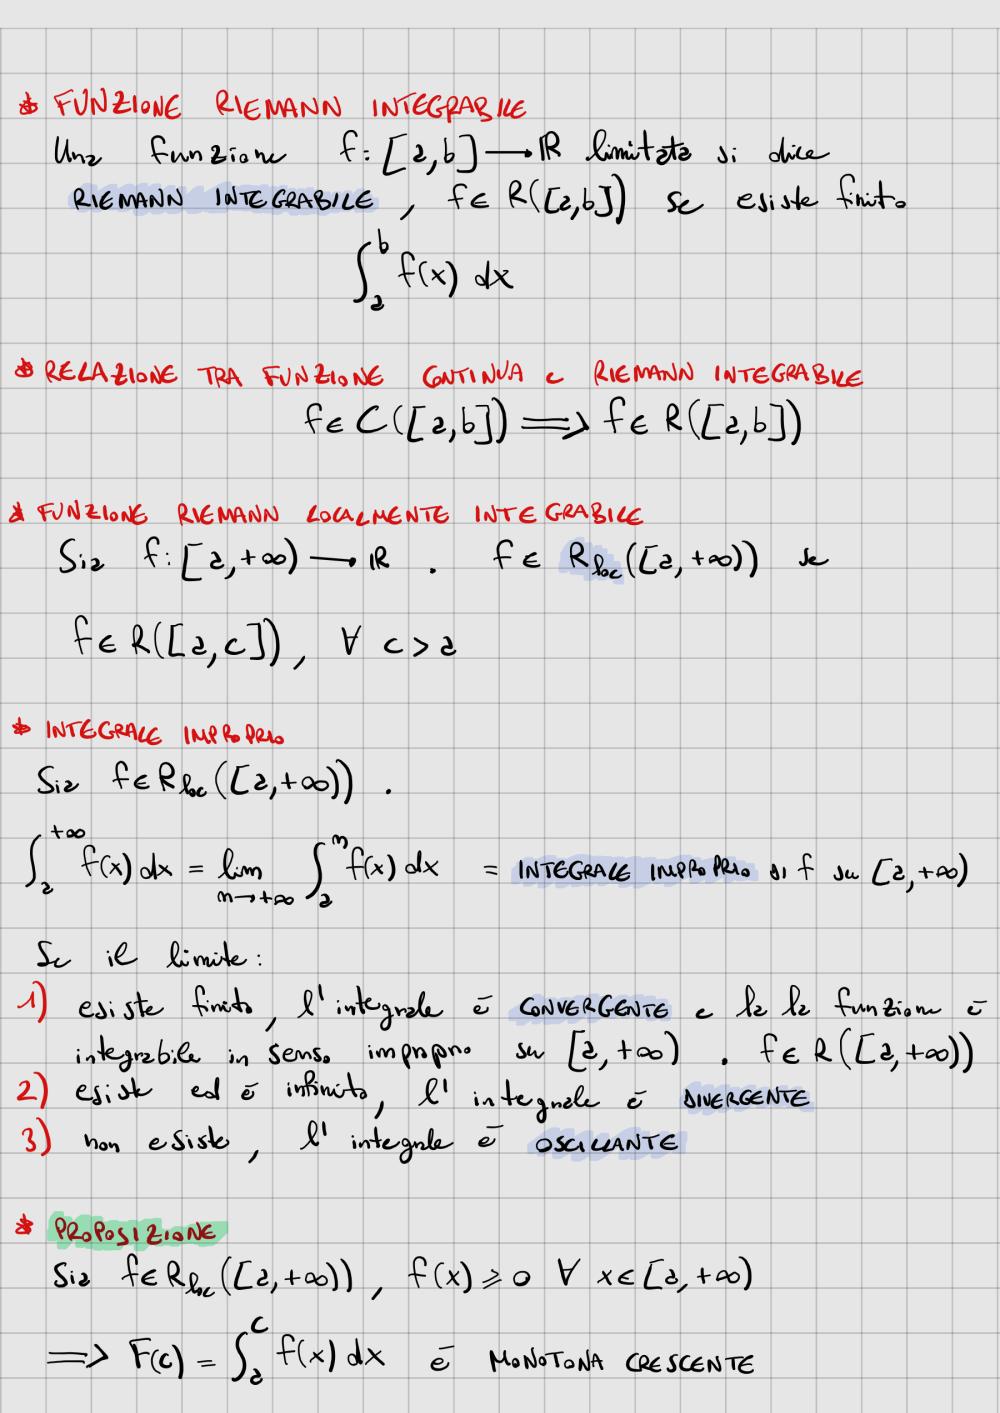 * FUNZIONE RIEMANN INTEGRABILE
Una funzione f: [a,b] → ℝ limitata si dice
RIEMANN INTEGRABILE, f ∈ R([a,b]) se esiste finito
∫_a^b f(x) dx
* RELAZIONE TRA FUNZIONE CONTINUA e RIEMANN INTEGRABILE
f ∈ C([a,b]) ⟹ f ∈ R([a,b])
* FUNZIONE RIEMANN LOCALMENTE INTEGRABILE
Sia f: [a,+∞) → ℝ . f ∈ R_loc([a,+∞)) se
f ∈ R([a,c]), ∀ c > a
* INTEGRALE IMPROPRIO
Sia f ∈ R_loc([a,+∞)).
∫_a^{+∞} f(x) dx = lim_{n→+∞} ∫_a^n f(x) dx = INTEGRALE IMPROPRIO di f su [a,+∞)
Se il limite:
1) esiste finito, l'integrale è CONVERGENTE e la la funzione è
integrabile in senso improprio su [a,+∞) . f ∈ R([a,+∞))
2) esiste ed è infinito, l'integrale è DIVERGENTE
3) non esiste, l'integrale è OSCILLANTE
* PROPOSIZIONE
Sia f ∈ R_loc([a,+∞)), f(x) ⩾ 0 ∀ x ∈ [a,+∞)
⟹ F(c) = ∫_a^c f(x) dx è MONOTONA CRESCENTE